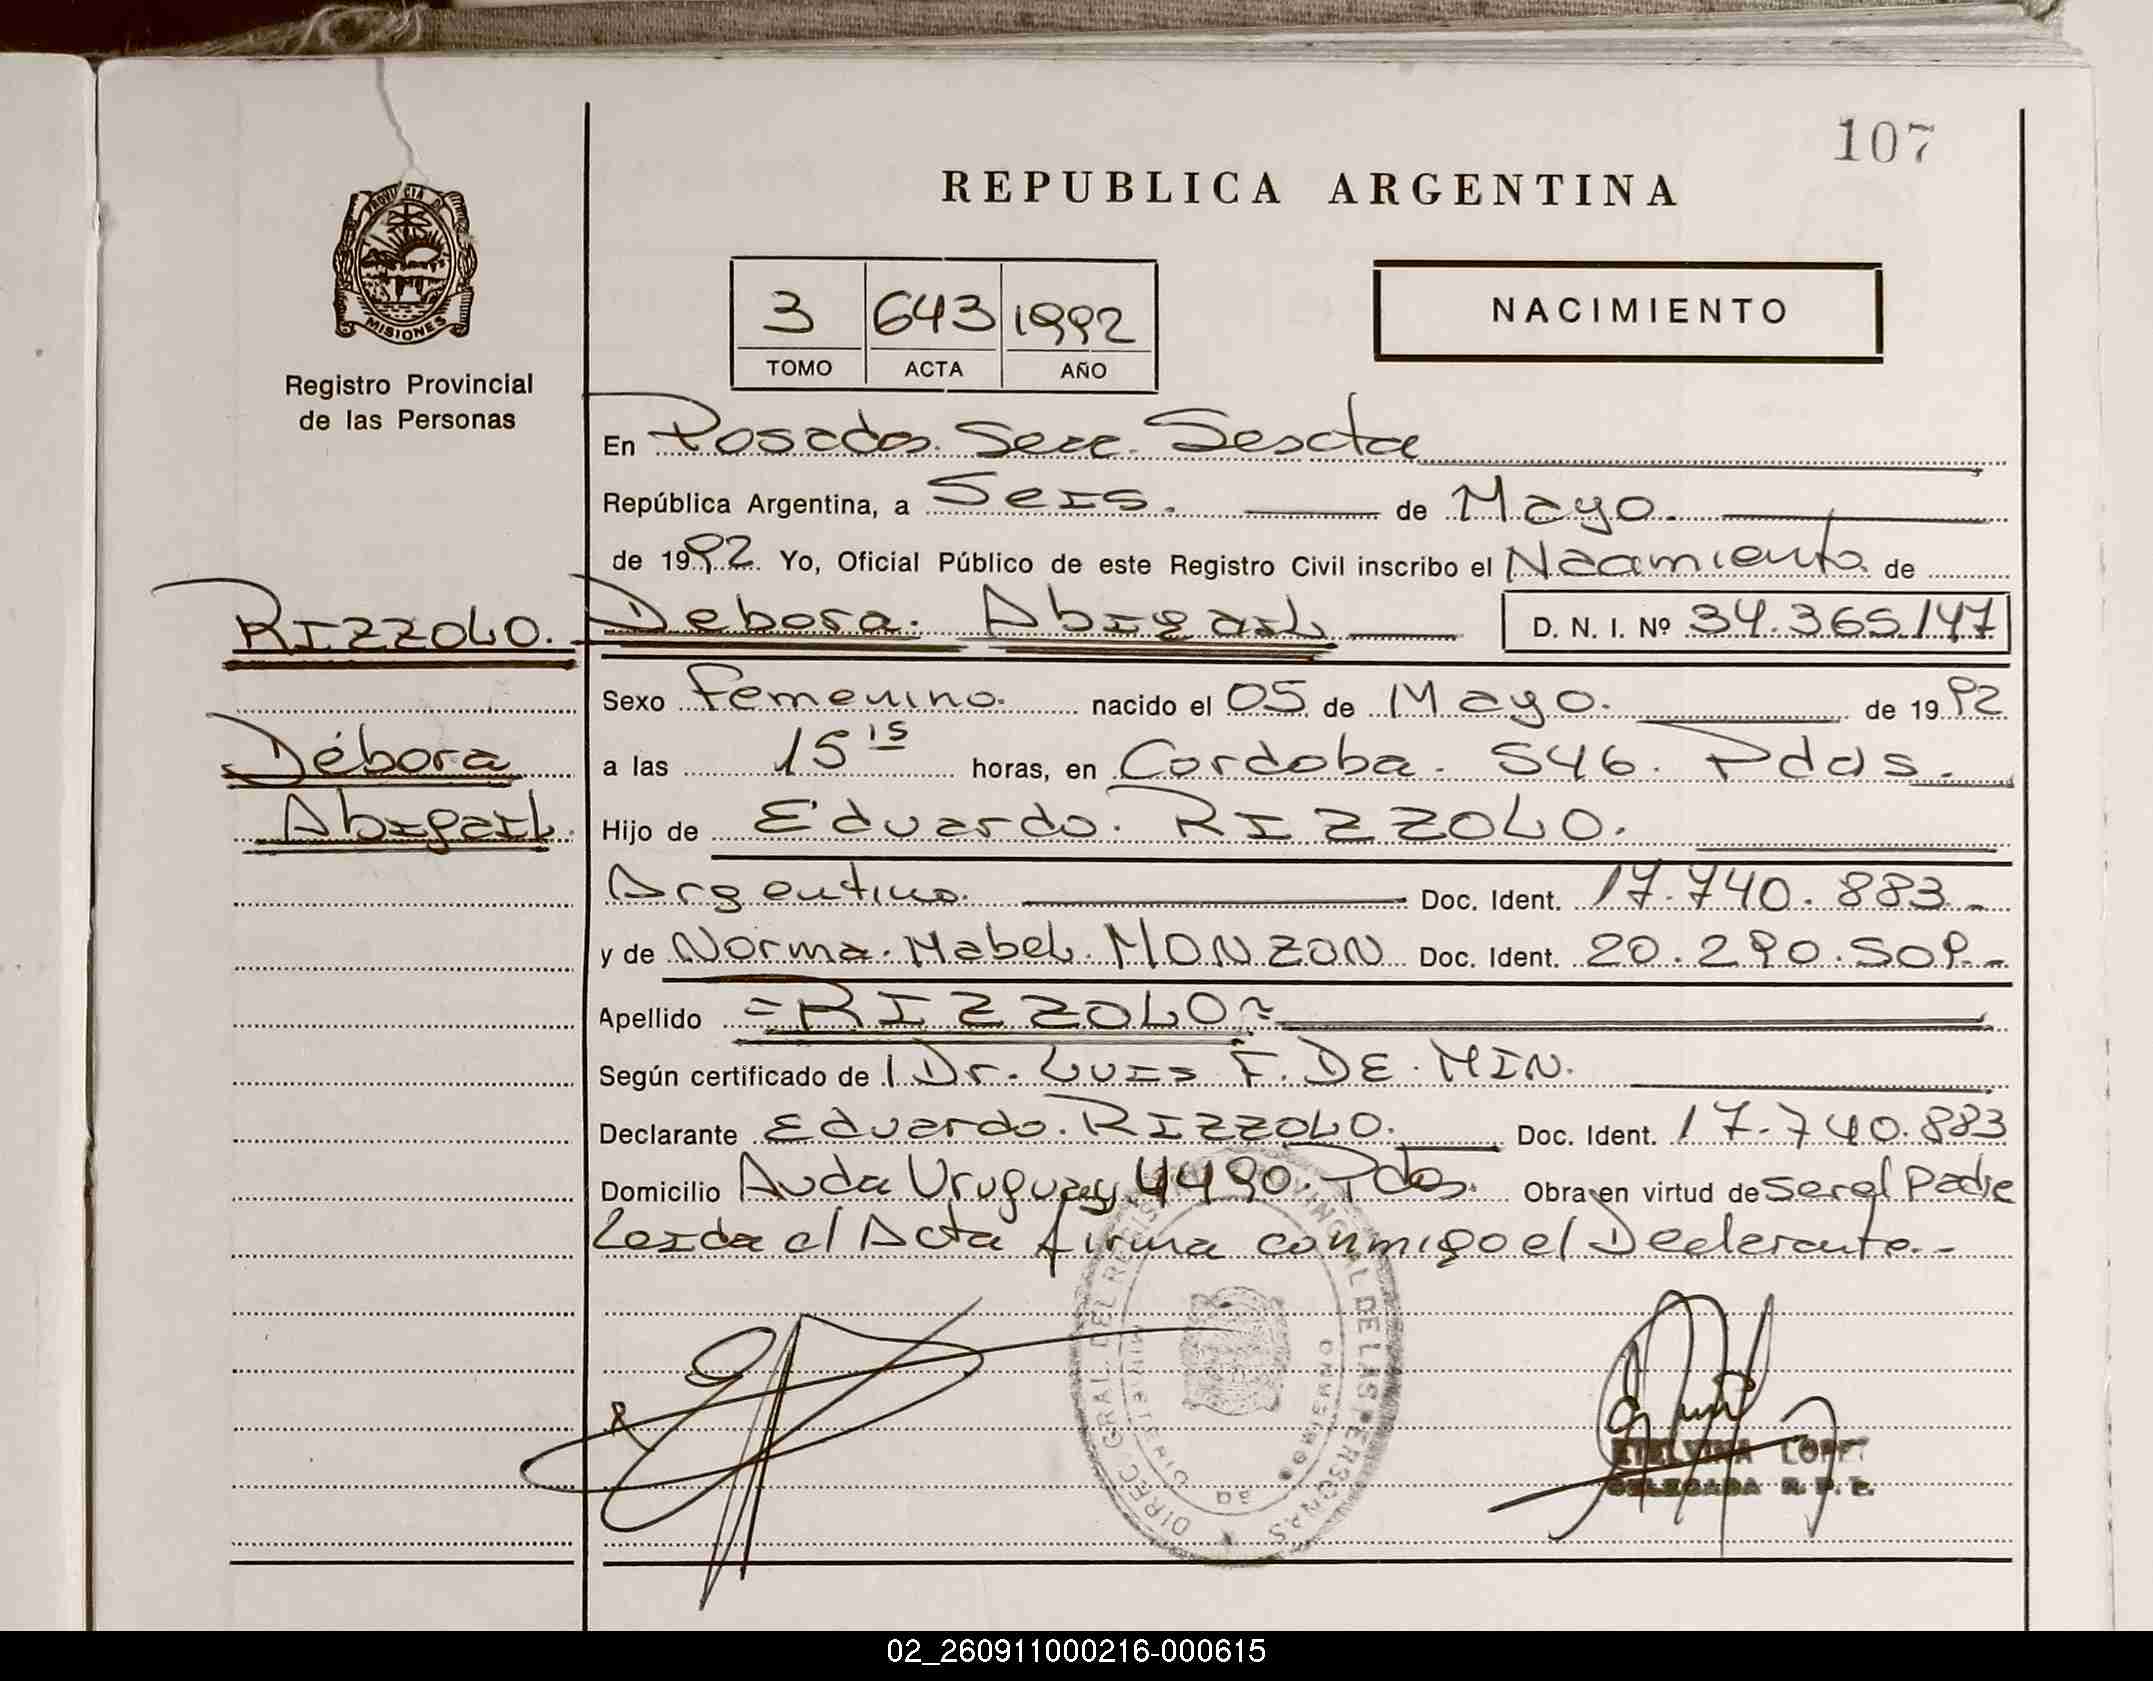 107
REPUBLICA ARGENTINA
PROVINCIA DE
MISIONES
Registro Provincial
de las Personas
3 643 1992
TOMO ACTA AÑO
NACIMIENTO
En Posadas. Secc. Sescta
República Argentina, a Seis. de Mayo.
de 1992. Yo, Oficial Público de este Registro Civil inscribo el Nacimiento. de
RIZZOLO. Debora. Abigail D. N. I. Nº 34.365.147
Sexo Femenino. nacido el 05 de Mayo. de 1992
Débora
a las 15 15 horas, en Cordoba. 546. Pdas.
Abigail.
Hijo de Eduardo. RIZZOLO.
Argentino. Doc. Ident. 17.740.883.-
y de Norma. Mabel. MONZON Doc. Ident. 20.290.509.-
Apellido =RIZZOLO=
Según certificado de Dr. Luis F. DE. MIN.
Declarante Eduardo. RIZZOLO. Doc. Ident. 17.740.883
Domicilio Avda Uruguay 4490. Pdas. Obra en virtud de ser el Padre
Leida el Acta firma conmigo el Declarante.-
DIREC. GRAL. DEL REGISTRO PROVINCIAL DE LAS PERSONAS
ETELVINA LOPEZ
DELEGADA R. P. P.
02_260911000216-000615